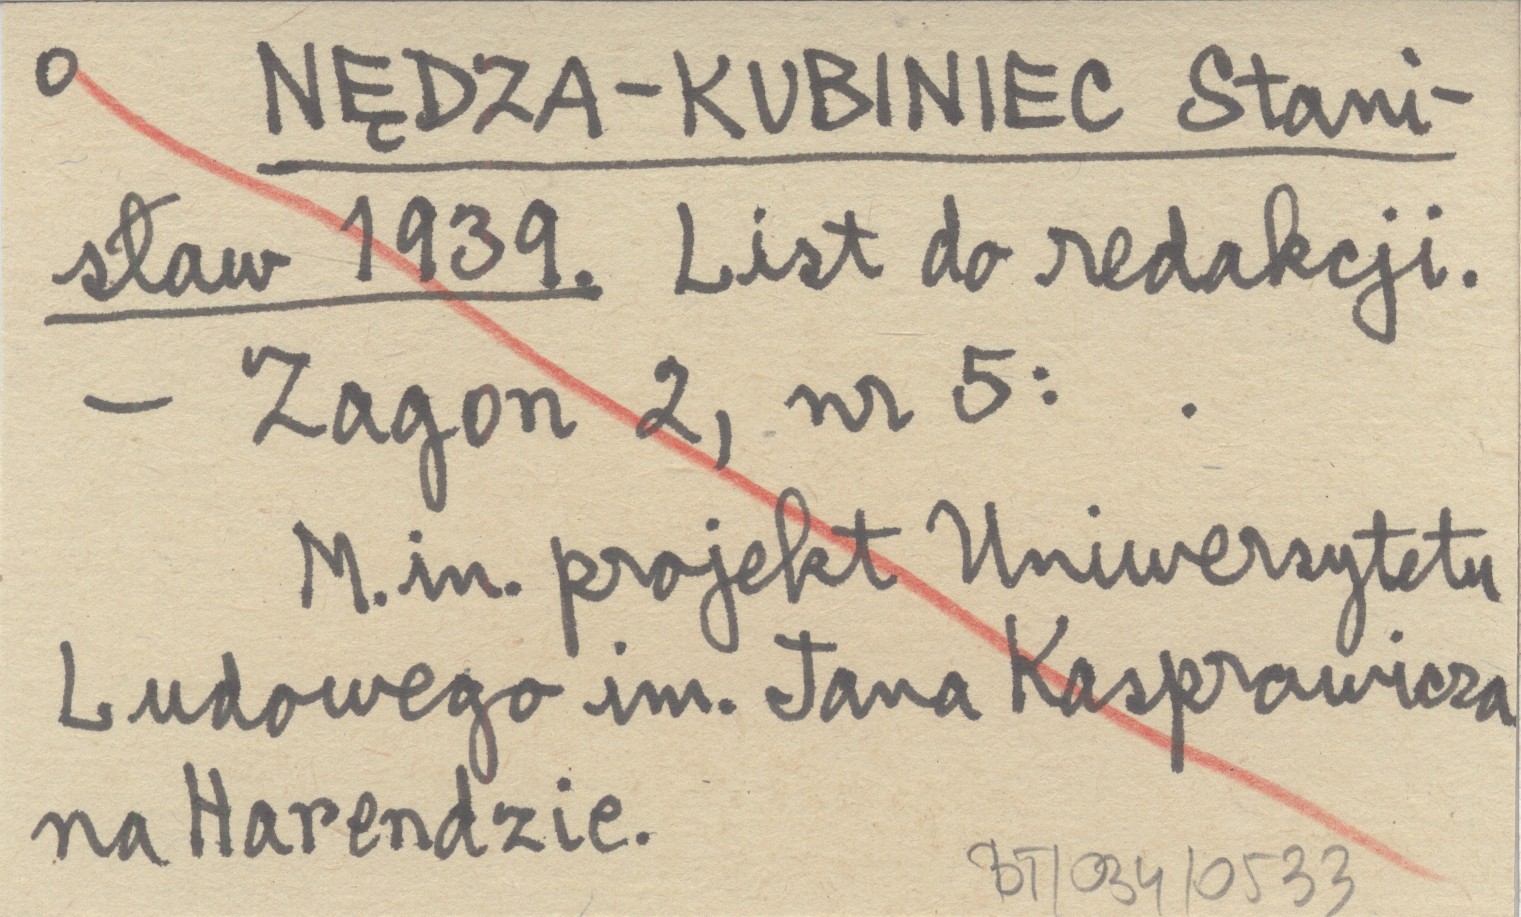 o NĘDZA-KUBINIEC Stani-
sław 1939. List do redakcji.
– Zagon 2, nr 5: .
M.in. projekt Uniwersytetu
Ludowego im. Jana Kasprowicza
na Harendzie.
BT/034/0533